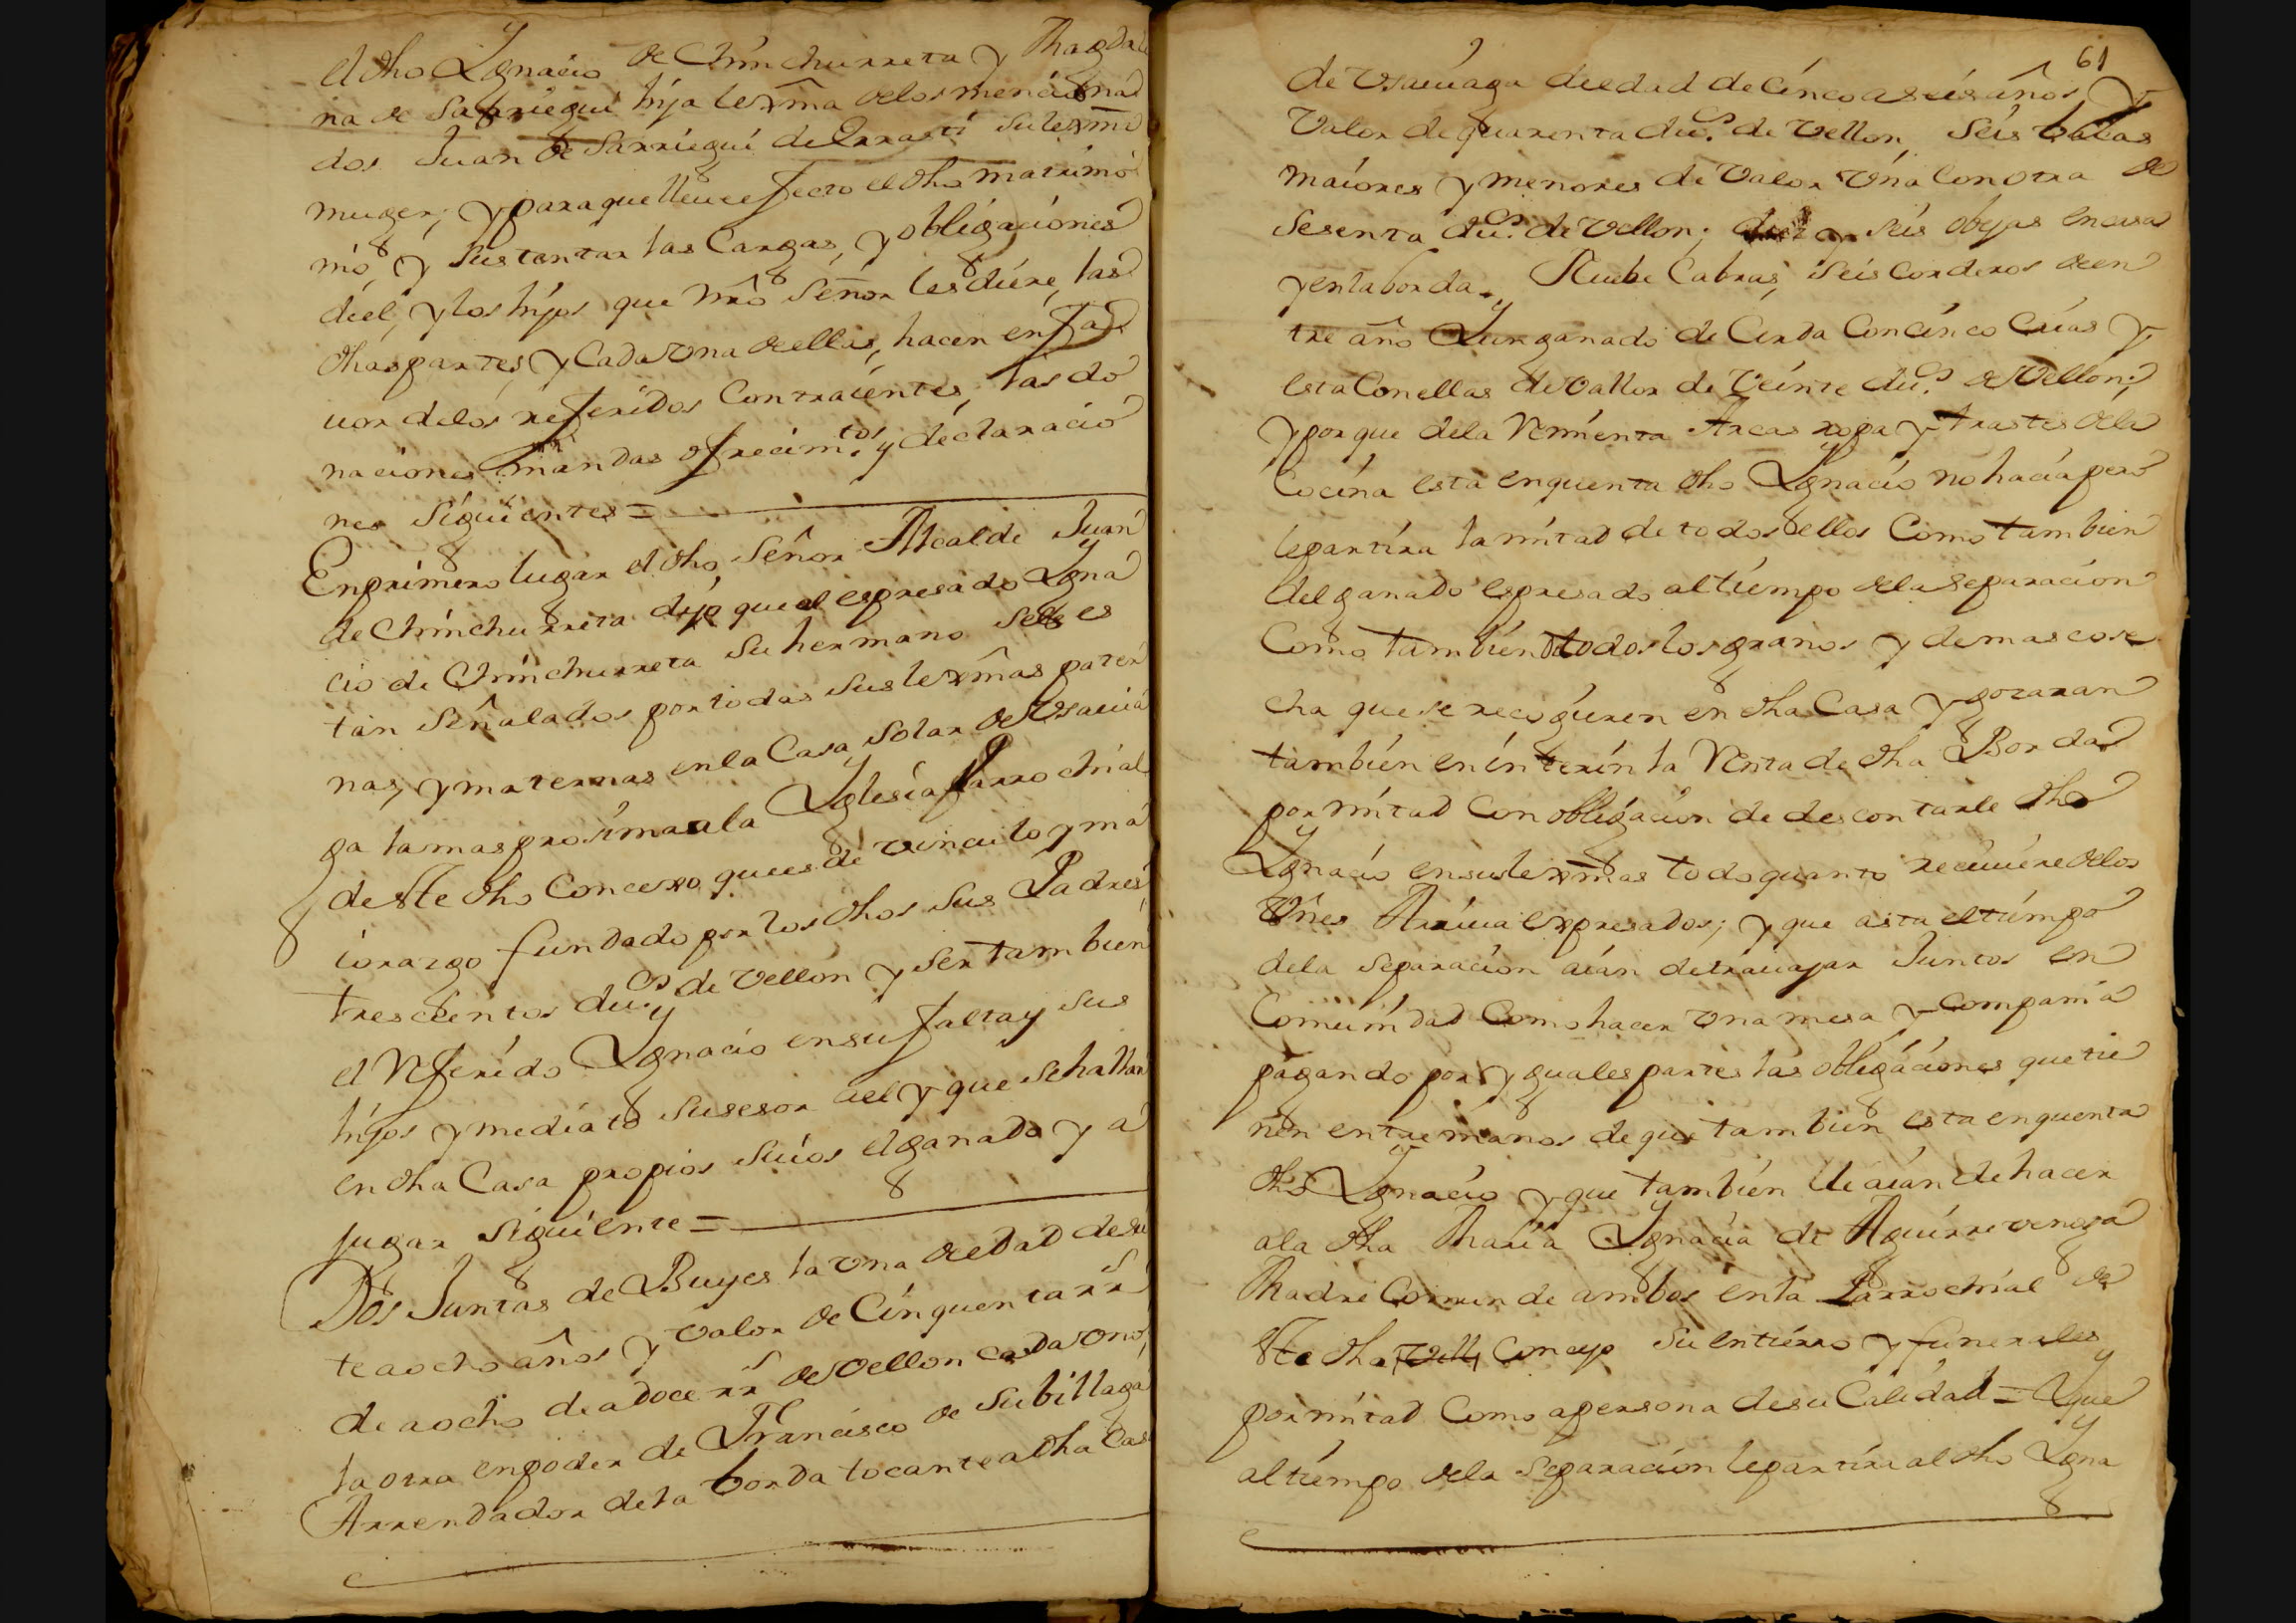 el dho Ygnacio de Chinchurreta y Magdale
na de Sarriegui hija lexma delos mencionad
dos Juan de Sarriegui de Errasti su lexma
muger; y para que lleue efecto el dho matrimo
nio, y sustentar las Cargas, y obligaciones
de el, y los hijos que nro Señor les diere, las
dhas partes, y Cada vna de ellas, hacen en fa
uor de los referidos Contraientes, las do
naciones mandas ofrecimtos y declaracio
nes siguientes =
En primero lugar el dho Señor Alcalde Juan
de Chinchurreta dijo que al espresado Ygna
cio de Chinchurreta su hermano se le es
tan señalados por todas sus lexmas pater
nas, y maternas en la Casa Solar de Vsauia
ga la mas prosima ala Yglesia Parrochial
deste dho Concexo que es de vinculo y ma
iorazgo fundado por los dhos sus Padres,
trescientos dus. de vellon y ser tambien
el Referido Ygnacio en su falta y sus
hijos ymediato susesor de el y que se hallan
en dha Casa propios suios el ganado y a
jugar siguiente =
Dos Juntas de Buyes la vna de edad de sie
te a ocho años y valor de Cinquenta rrs
de a ocho de a doce rrs de vellon cada vno,
la otra en poder de Francisco de Subillaga
Arrendador de la borda tocante a dha Cas
61
de Vsauiaga de edad de Cinco a seis años, y
Valor de quarenta dus. de Vellon, Seis bacas
maiores y menores de Valor Vna con otra de
Sesenta dus. de Vellon; diez y seis obejas en casa
y en la borda, Nuebe Cabras, seis Corderos de en
tre año Yun ganado de Cerda Con cinco Crias y
esta Con ellas de Vallor de Veinte dus. de Vellon;
y por que de la Remienta Arcas ropa y trastes de la
Cocina esta en quenta dho Ygnacio no hacia pero
le partira la mitad de todos ellos Como tambien
del ganado espresado al tiempo de la separacion
Como tambien de todos los granos y demas cose
cha que se recogieren en dha Casa y gozaran
tambien en interin la Renta de dha Borda
por mitad Con obligacion de descontarle dho
Ygnacio en sus lexmas todo quanto reciuiere de los
Vnes Arriua expresados; y que asta el tiempo
de la separacion aian de trauajar Juntos en
Comunidad Como hacer vna mesa y Compania
pagando por yguales partes las obligaciones que tie
nen entre manos de que tambien esta en quenta
dho Ygnacio y que tambien le aian de hacer
ala dha Maria Ygnacia de Aguirre venesa
Madre Comun de ambos en la Parrochial de
ste dha Villa Concejo su entierro y funerales
por mitad Como a persona de su Calidad = Y que
al tiempo de la Separacion le partira al dho Ygna